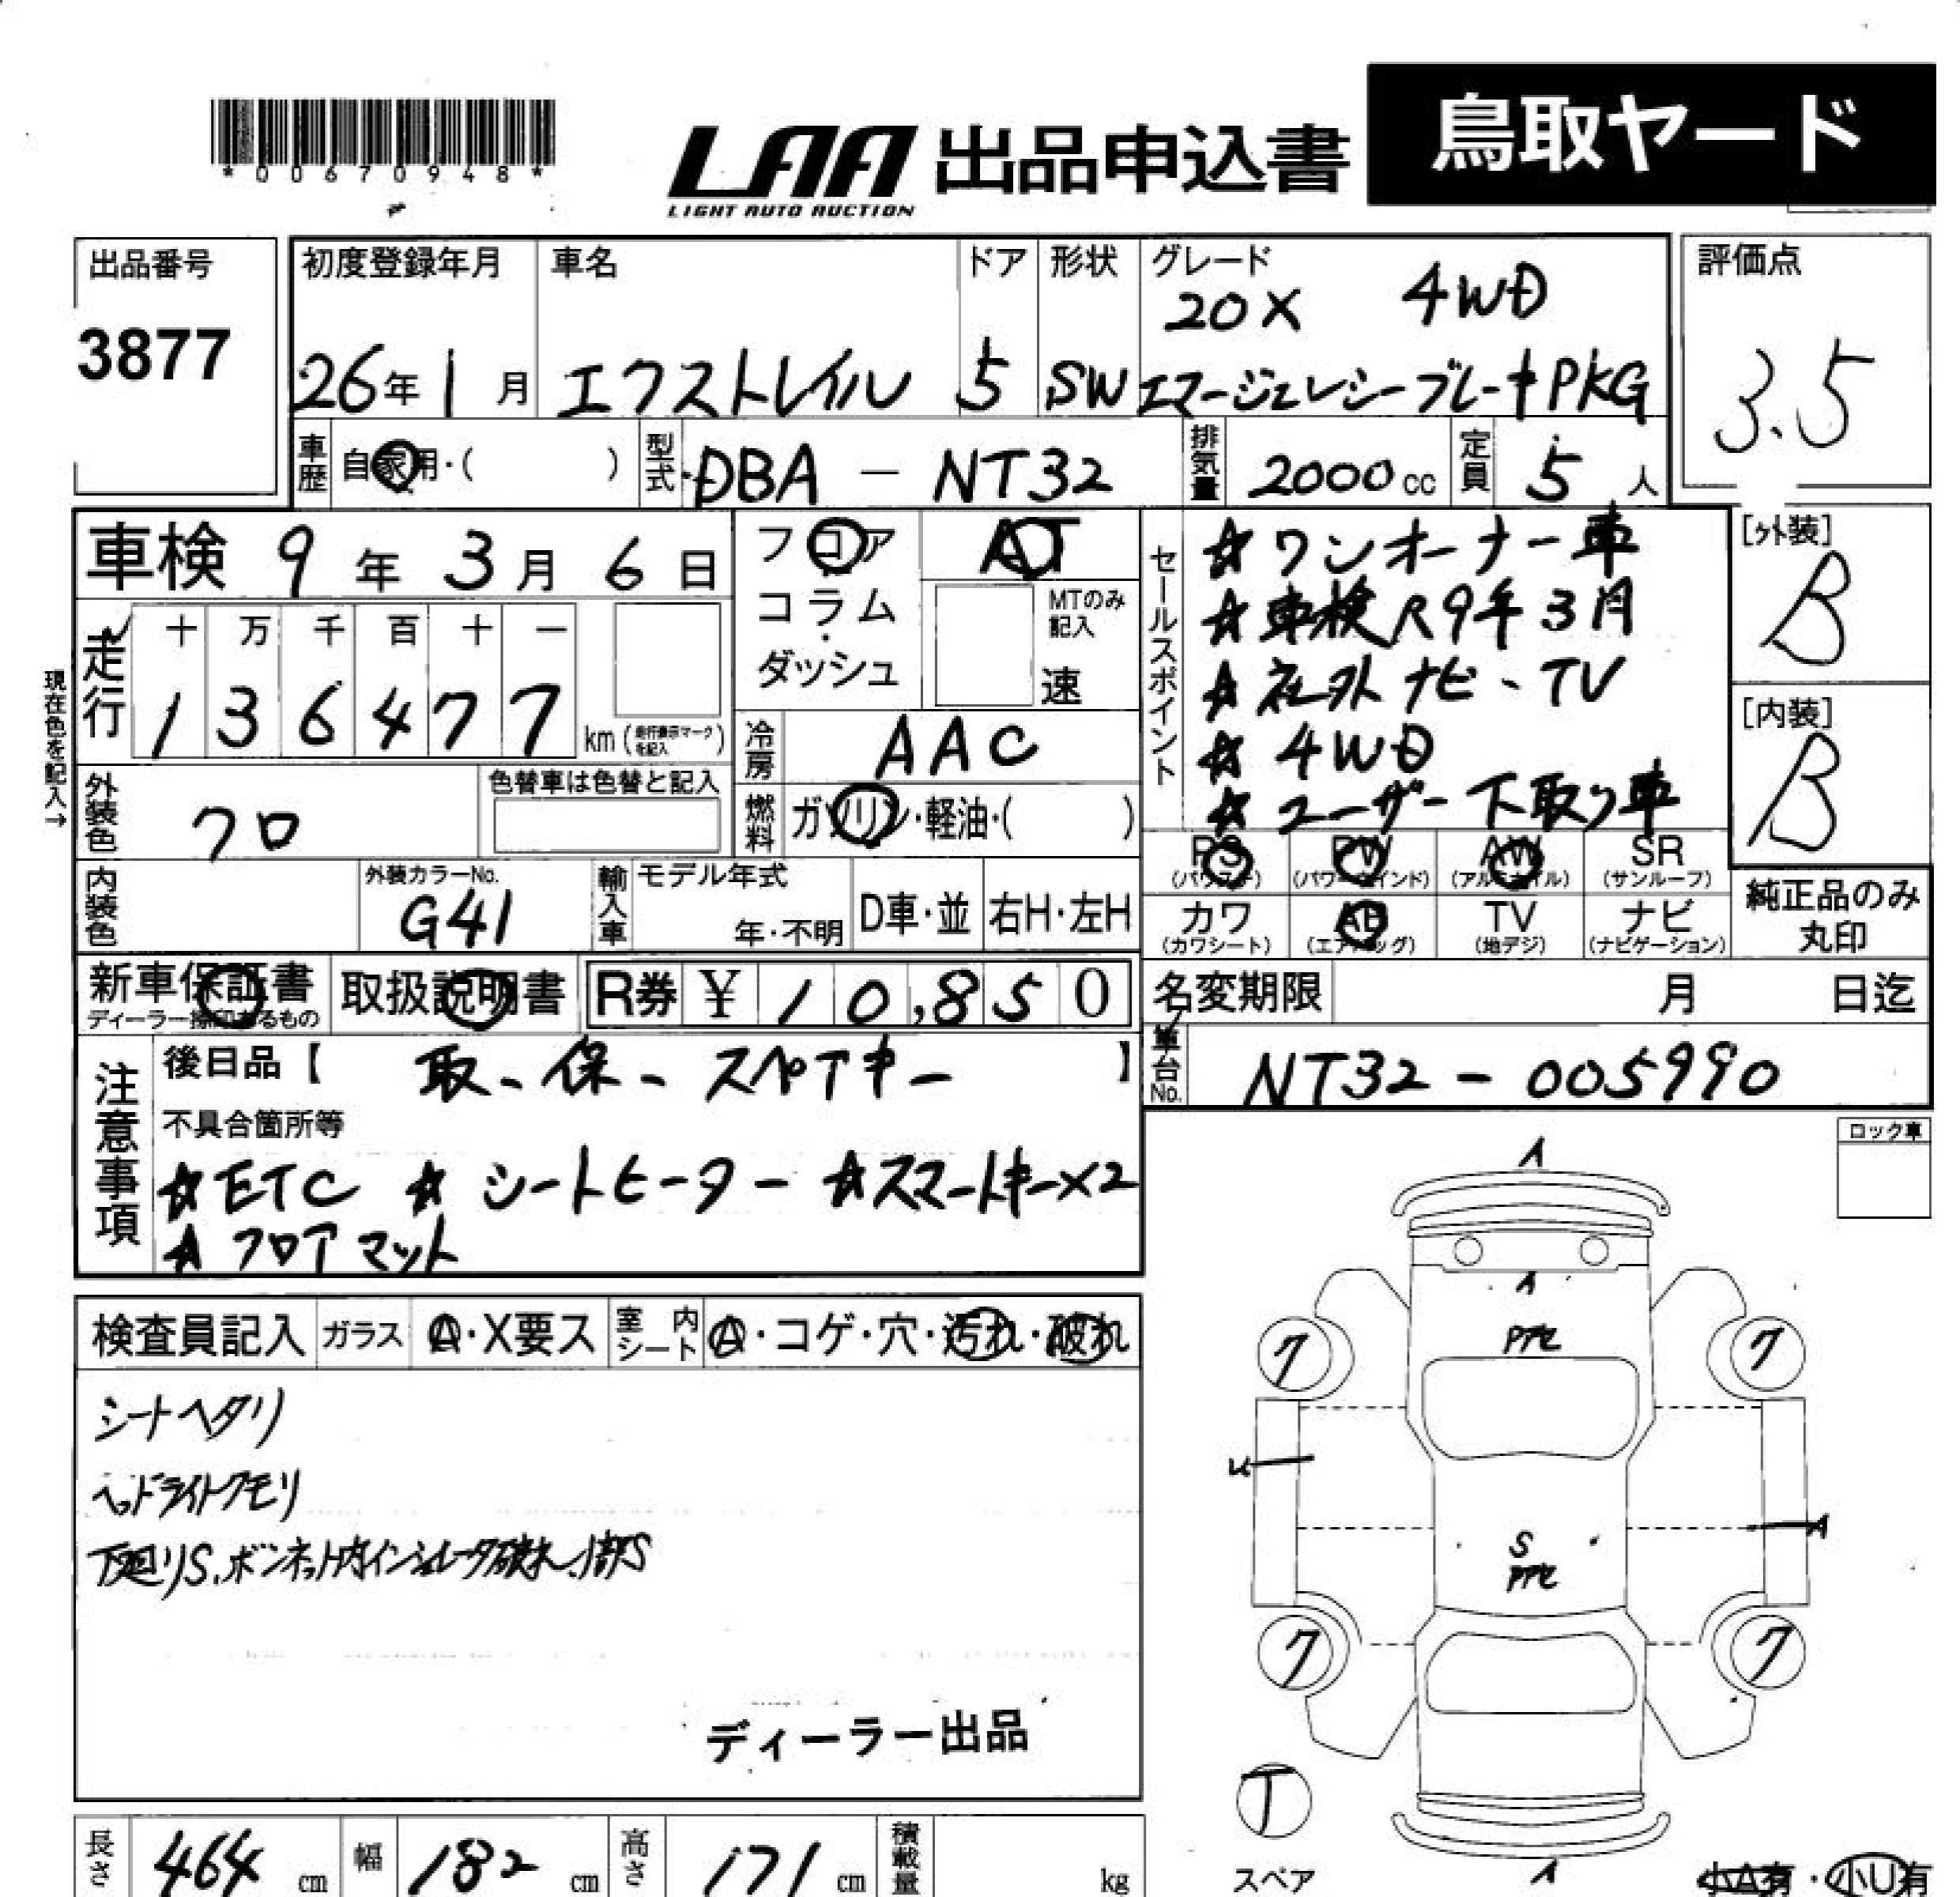 *00670948*
LAA 出品申込書 鳥取ヤード
LIGHT AUTO AUCTION
出品番号
3877
初度登録年月
26年1月
車名
エクストレイル
ドア
5
形状
SW
グレード
20X 4WD
エマージェンシーブレーキPKG
評価点
3.5
車歴 自家用・( )
型式 DBA-NT32
排気量 2000cc
定員 5人
車検 9年3月6日
フロア
コラム
・
ダッシュ
AT
MTのみ記入
速
現在色を記入→
走行
十 万 千 百 十 一
1 3 6 4 7 7 km(走行表示マークを記入)
冷房 AAC
外装色 クロ
色替車は色替と記入
燃料 ガソリン・軽油・( )
内装色
外装カラーNo.
G41
輸入車
モデル年式
年・不明
D車・並
右H・左H
セールスポイント
☆ワンオーナー車
☆車検R9年3月
☆社外ナビ、TV
☆4WD
☆ユーザー下取り車
[外装]
B
[内装]
B
PS PW AW SR
(パワステ) (パワーウインド) (アルミホイル) (サンルーフ)
カワ AB TV ナビ
(カワシート) (エアバッグ) (地デジ) (ナビゲーション)
純正品のみ
丸印
新車保証書
ディーラー捺印あるもの
取扱説明書
R券 ¥10,850
名変期限 月 日迄
車台No. NT32-005990
注意事項
後日品【 取、保、スペアキー 】
不具合箇所等
☆ETC ☆シートヒーター ☆スマートキー×2
☆フロアマット
ロック車
検査員記入
ガラス A・X要ス
室内シート A・コゲ・穴・汚れ・破れ
シートヘタリ
ヘッドライトクモリ
下廻りS、ボンネット内インシュレータ破れ、
ディーラー出品
A
A
7 7
A
S
7 7
T
スペア
A
小A有・小U有
長さ 464cm
幅 182cm
高さ 171cm
積載量 kg